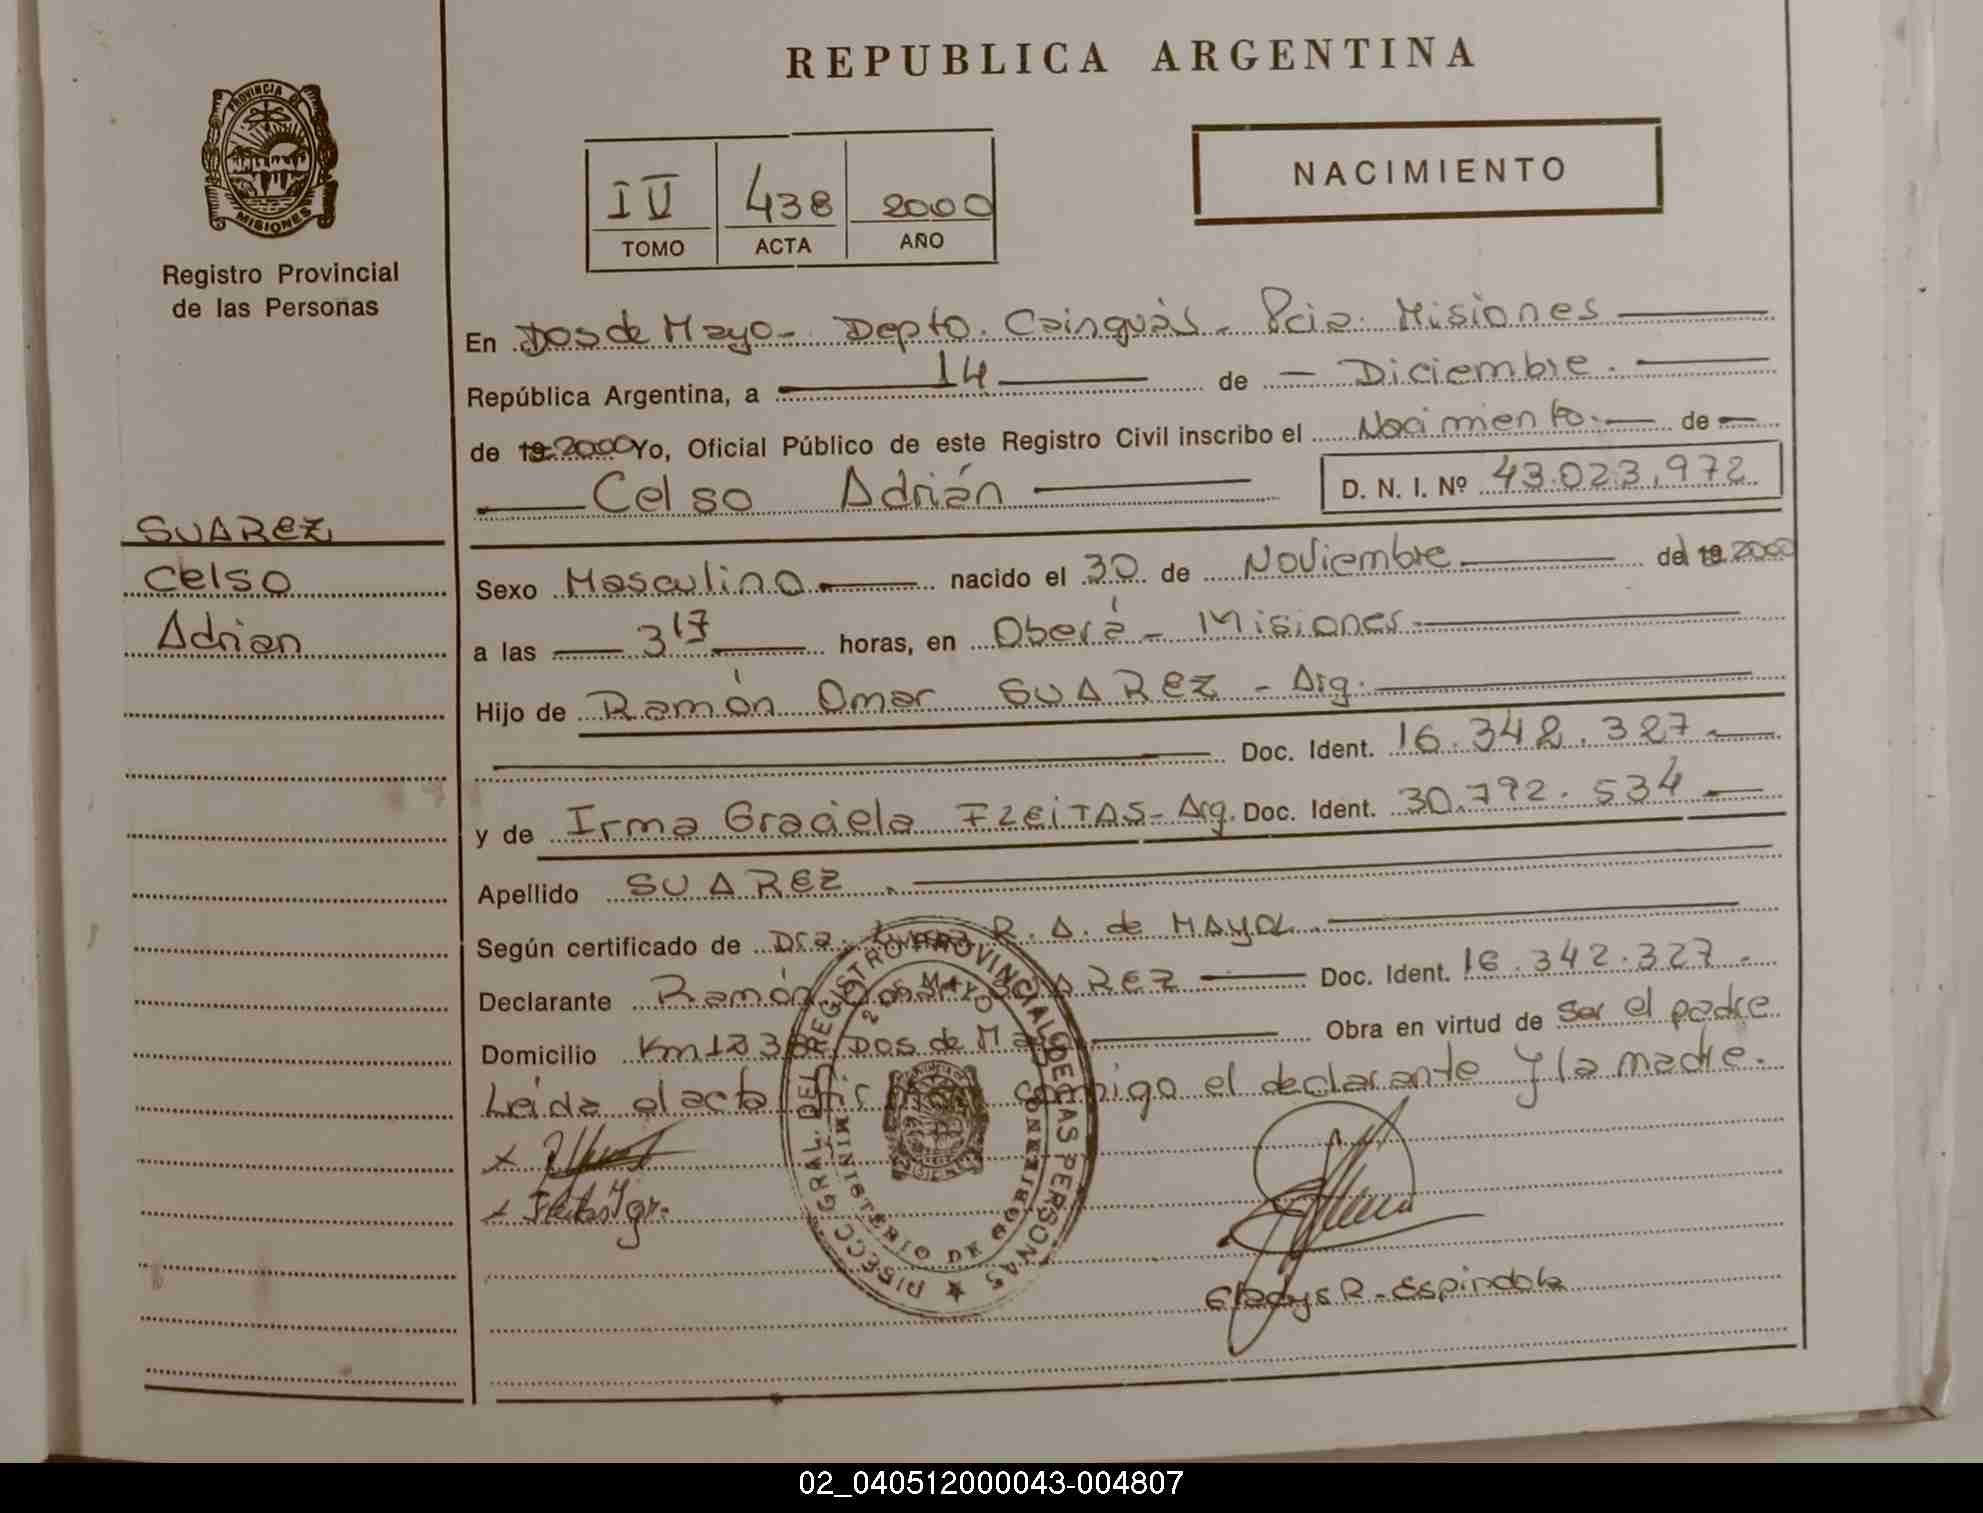 REPUBLICA ARGENTINA
PROVINCIA DE
MISIONES
Registro Provincial
de las Personas
IV 438 2000
TOMO ACTA AÑO
NACIMIENTO
En Dos de Mayo - Depto. Cainguás - Pcia. Misiones
República Argentina, a 14 de Diciembre.
de 19 2000 Yo, Oficial Público de este Registro Civil inscribo el Nacimiento de
Celso Adrián D. N. I. Nº 43.023.972
SUAREZ
Celso
Adrian
Sexo Masculino nacido el 30 de Noviembre del 19 2000
a las 3 17 horas, en Oberá - Misiones
Hijo de Ramón Omar SUAREZ - Arg.
Doc. Ident. 16.342.327
y de Irma Graciela FREITAS - Arg. Doc. Ident. 30.792.534
Apellido SUAREZ
Según certificado de Dra. R. A. de MAYOL
Declarante Ramón Omar SUAREZ Doc. Ident. 16.342.327
Domicilio Dos de Mayo Obra en virtud de ser el padre
Leída el acta firman conmigo el declarante y la madre.
DIRECC. GRAL. DEL REGISTRO PROVINCIAL DE LAS PERSONAS
2 DE MAYO
MINISTERIO DE GOBIERNO
Gladys R. Espindola
02_040512000043-004807